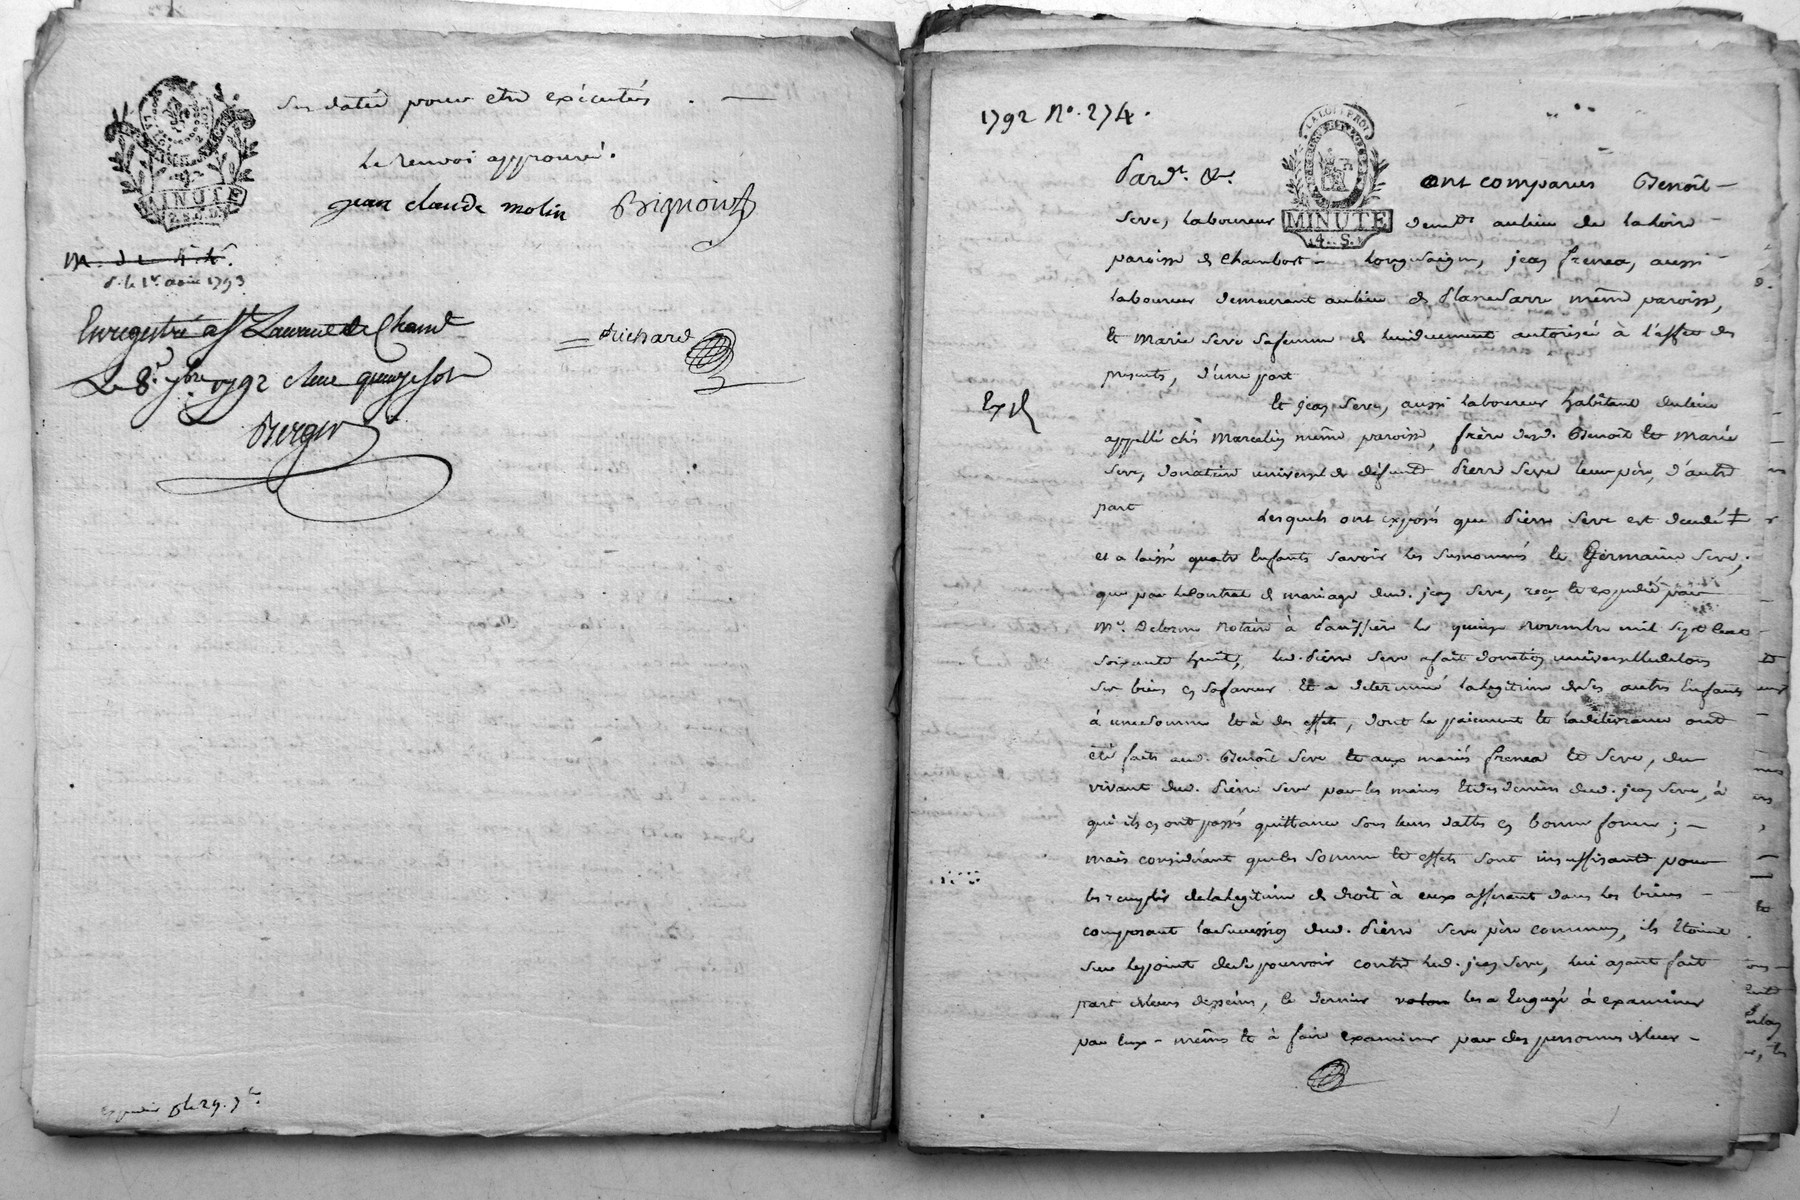 Ses datte pour etre exécutées.
le renvoi approuvé.
MINUTE
2 S. 6 D.
jean claude molin Bignoud
d. le 1er aout 1793
Enregistré a St Laurent de Chamt
Le 8e 7bre 1792 quinze sols
Richard
Berger
1792 No. 274.
LA LOI LE ROI
MINUTE
4. S.
Pardt. &c. ont comparus Benoît
Seve, laboureur demt au lieu de la Loire
paroisse de Chambost Longessaigne, jean frenea, aussi
laboureur demeurant au lieu de même paroisse,
Et Marie Seve sa femme de lui dument autorisée à l'effet des
presents, d'une part
Et jean Seve, aussi laboureur habitant du lieu
Exp
appellé chés Marcelin même paroisse, frère desd. Benoît et Marie
Seve, donataire universel de défunt Pierre Seve leur père, d'autre
part Lesquels ont exposés que Pierre Seve est décédé ‡
et a laissé quatre Enfants savoir les susnommés et Germaine Seve;
que par le contrat de mariage dud. jean Seve, reçu et expédié par
Me. Delorme Notaire à Panissière le quinze novembre mil sept cent
soixante huit, led. Pierre Seve a fait donation universelle de tous
ses biens en sa faveur Et a determiné la legitime de ses autres Enfants
à une somme et à des effets, dont le paiement et la délivrance ont
été faits aud. Benoît Seve et aux mariés frenea et Seve, du
vivant dud. Pierre Seve par les mains et des deniers dud. jean Seve, à
qui ils en ont passés quittance sous leurs dattes en bonne forme;
mais considérant que les somme et effets sont insuffisants pour
les remplir de la legitime de droit à eux afferant dans les biens
composant la succession dud. Pierre Seve père commun, ils étoient
sur le point de se pourvoir contre led. jean Seve, lui ayant fait
part de leurs desseins, ce dernier les a Engagé à examiner
par eux-mêmes et à faire examiner par des personnes de leur